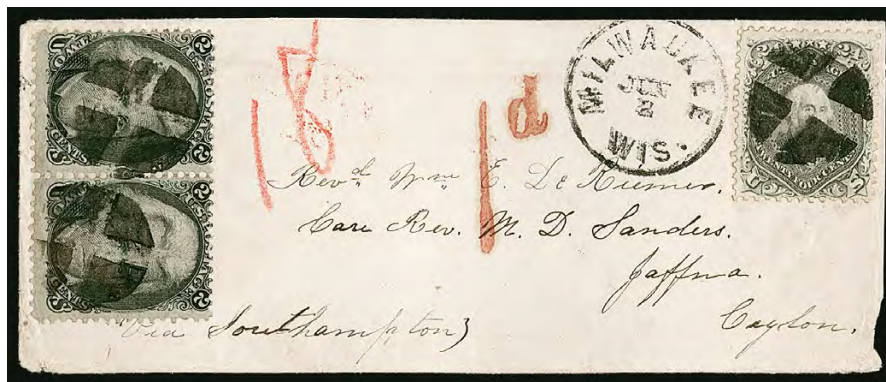 18
1d
MILWAUKEE
JUN
2
WIS.
Revd. Wm. E. De Riemer.
Care Rev. M. D. Sanders.
Jaffna.
Ceylon.
Via Southampton